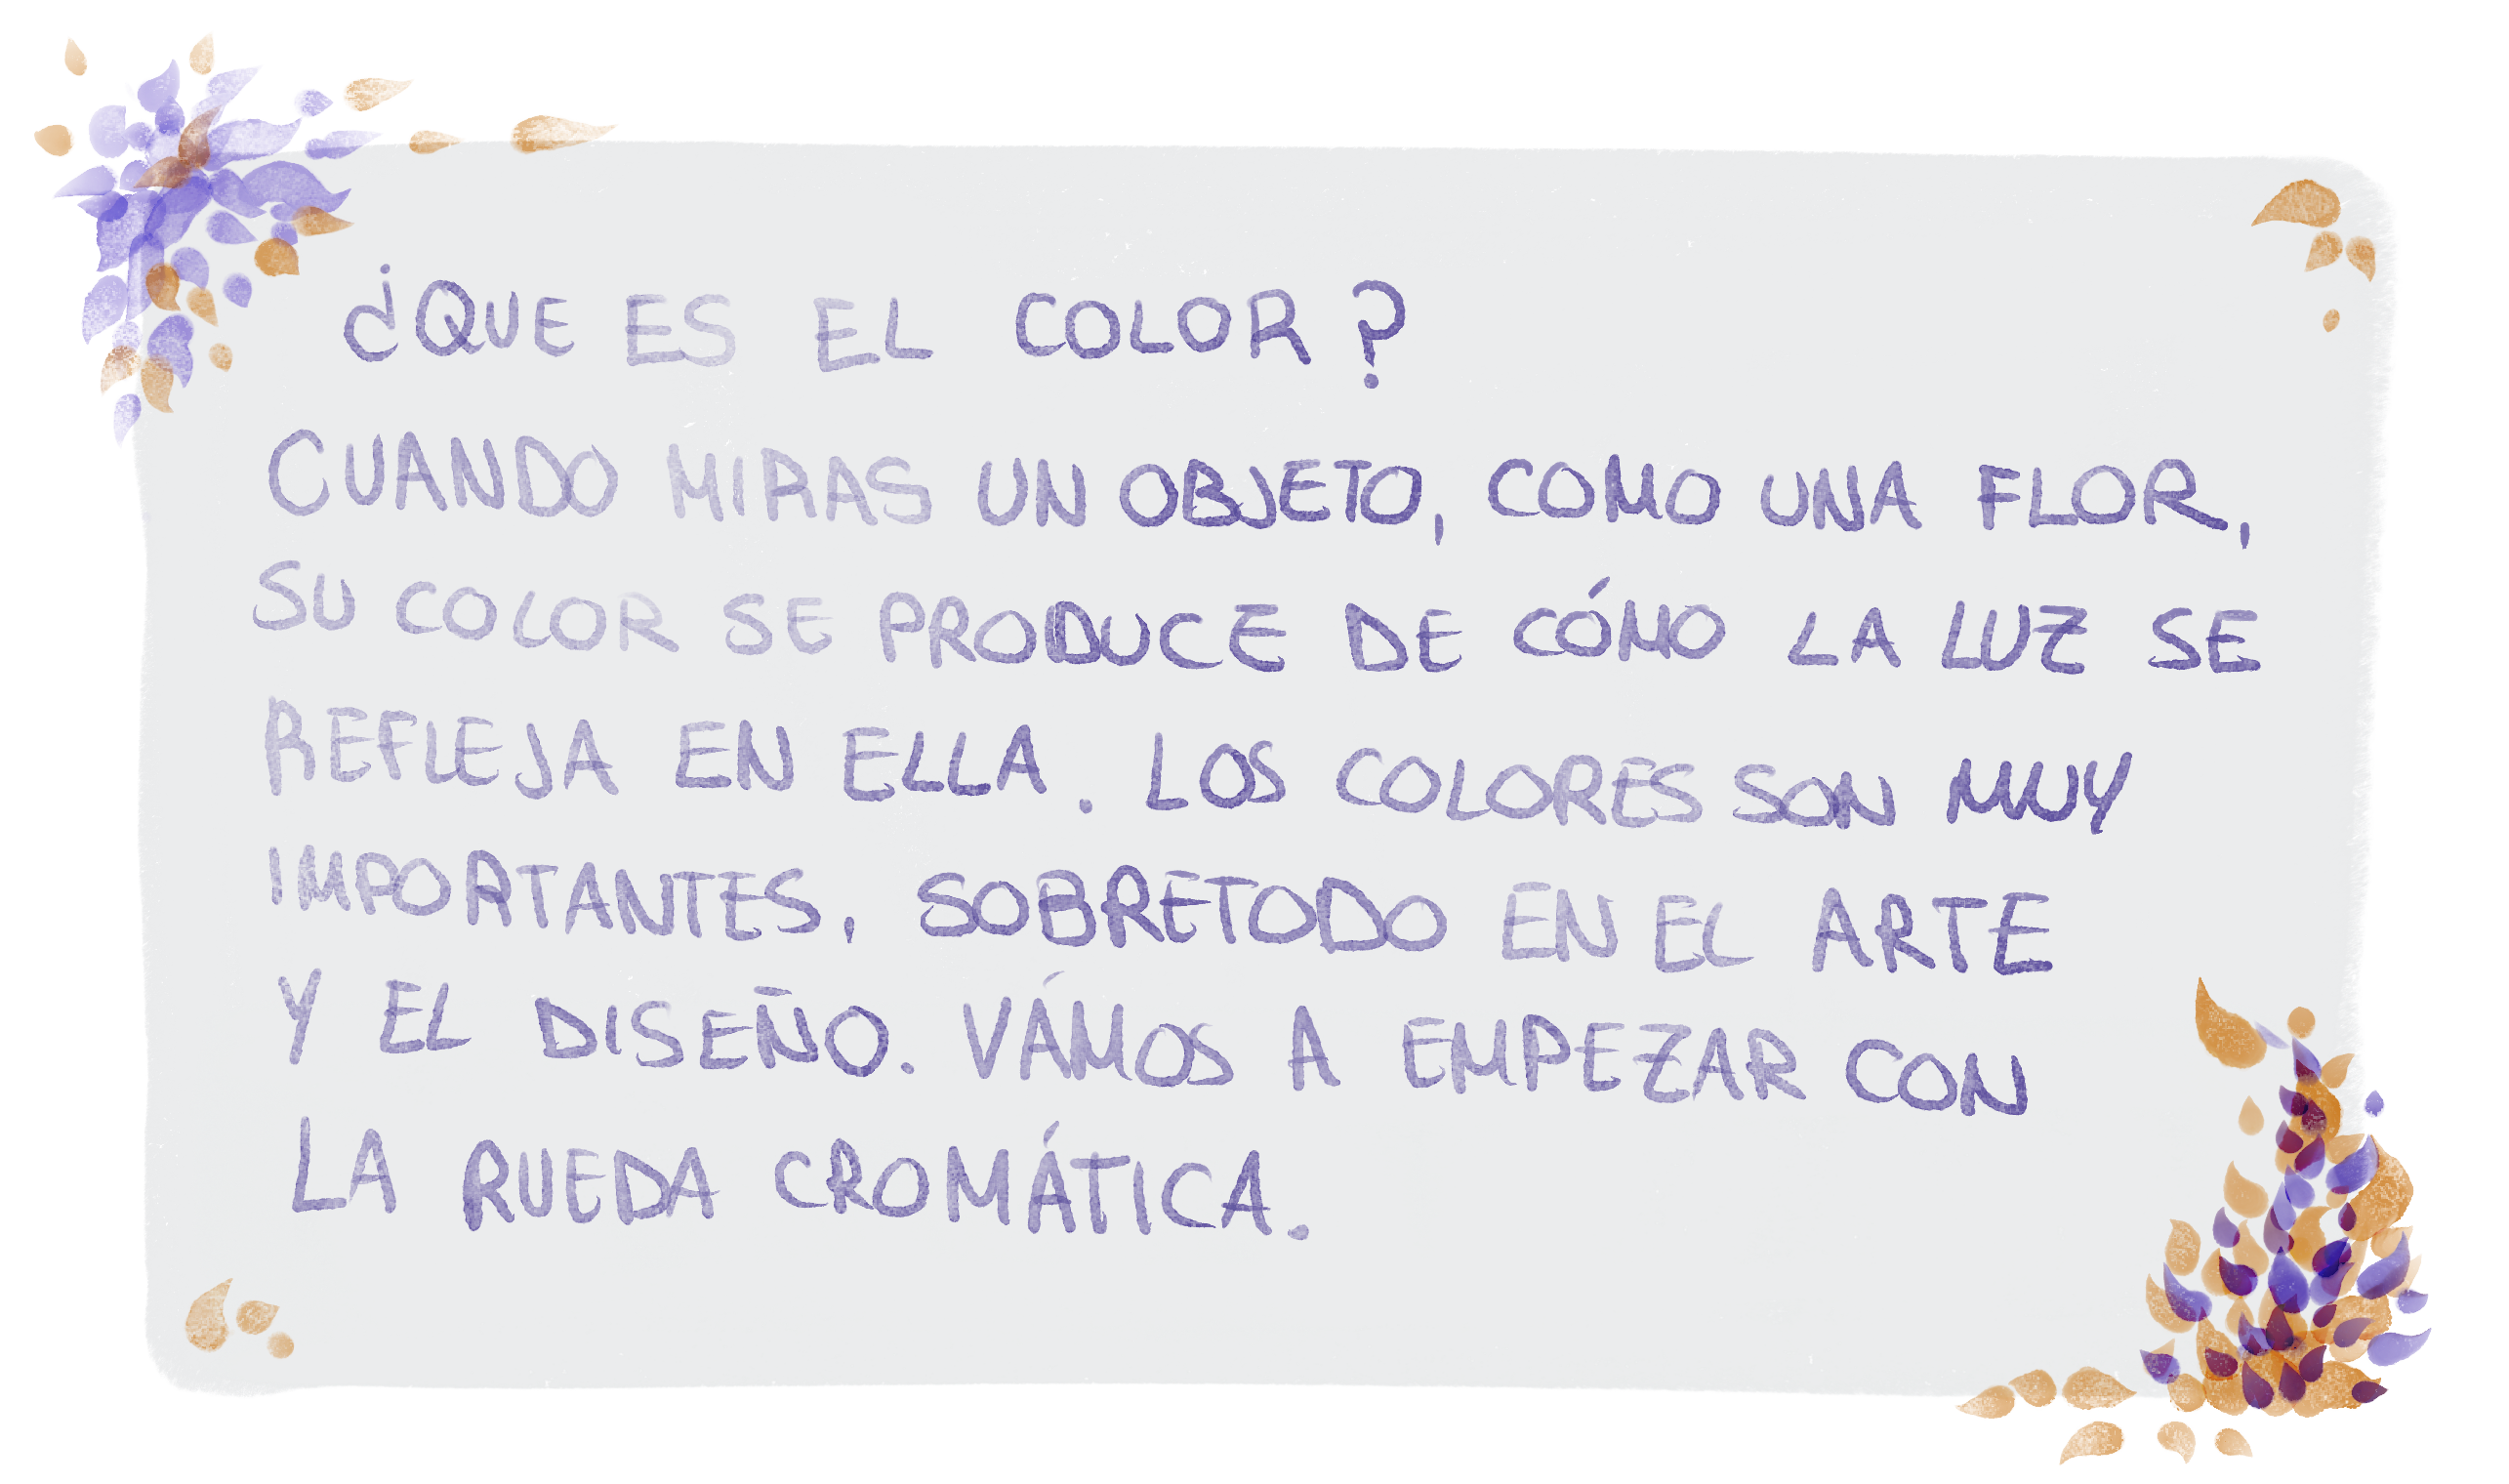 ¿QUE ES EL COLOR?
CUANDO MIRAS UN OBJETO, COMO UNA FLOR,
SU COLOR SE PRODUCE DE CÓMO LA LUZ SE
REFLEJA EN ELLA. LOS COLORES SON MUY
IMPORTANTES, SOBRETODO EN EL ARTE
Y EL DISEÑO. VÁMOS A EMPEZAR CON
LA RUEDA CROMÁTICA.